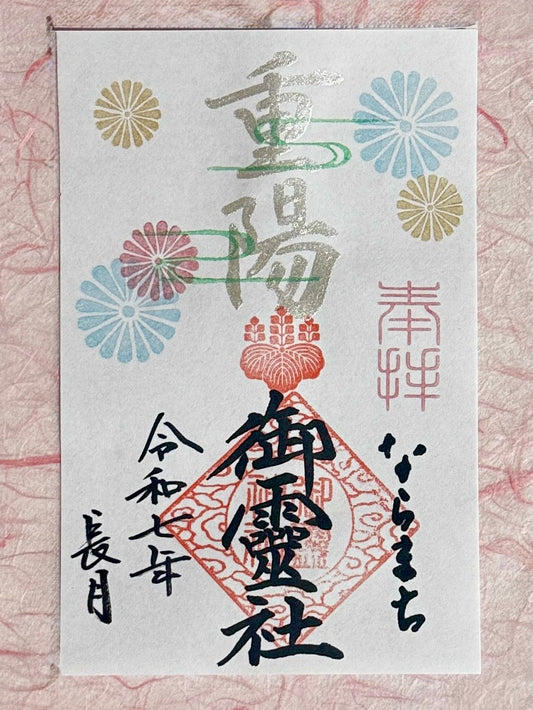 重陽
奉拝
ならまち
御靈社
令和七年
長月